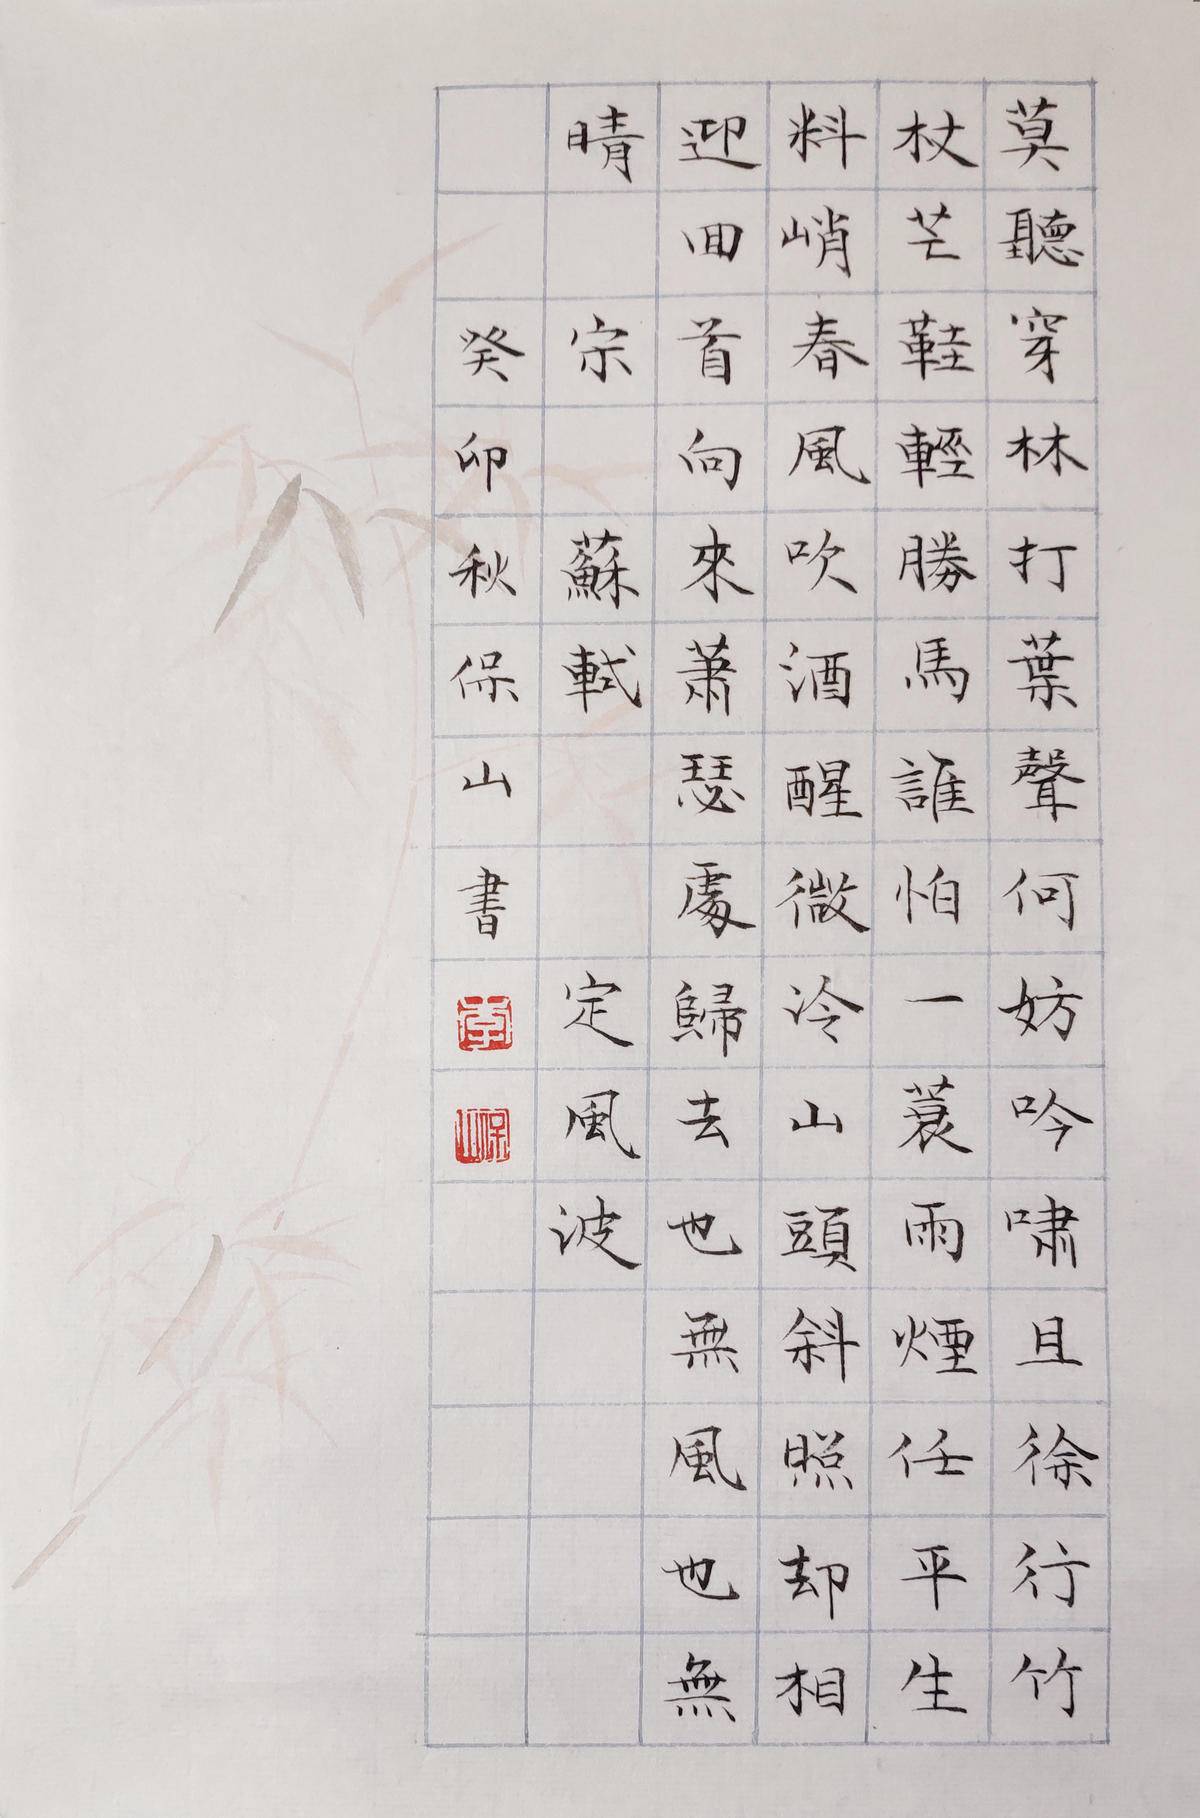 莫聽穿林打葉聲何妨吟嘯且徐行竹
杖芒鞋輕勝馬誰怕一蓑雨煙任平生
料峭春風吹酒醒微冷山頭斜照却相
迎回首向來蕭瑟處歸去也無風也無
晴 宋 蘇軾 定風波
癸卯秋保山書
保山